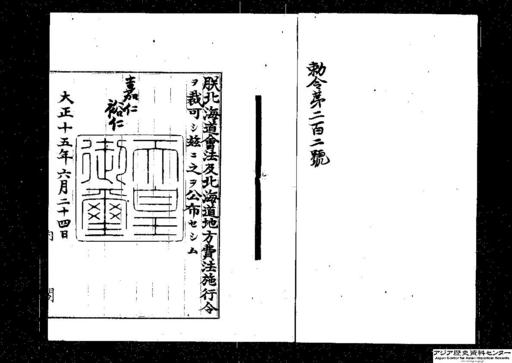 勅令第二百二號
朕北海道會法及北海道地方費法施行令
ヲ裁可シ玆ニ之ヲ公布セシム
嘉仁
裕仁
天皇
御璽
大正十五年六月二十四日
内閣
アジア歴史資料センター
Japan Center for Asian Historical Records